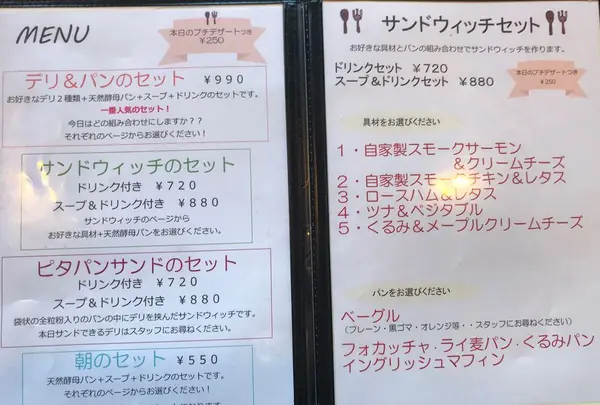 MENU
本日のプチデザートつき
￥250
デリ＆パンのセット ￥９９０
お好きなデリ２種類＋天然酵母パン＋スープ＋ドリンクのセットです。
一番人気のセット！
今日はどの組み合わせにしますか？？
それぞれのページからお選びください！
サンドウィッチのセット
ドリンク付き ￥７２０
スープ＆ドリンク付き ￥８８０
サンドウィッチのページから
お好きな具材＋天然酵母パンをお選びください。
ピタパンサンドのセット
ドリンク付き ￥７２０
スープ＆ドリンク付き ￥８８０
袋状の全粒粉入りのパンの中にデリを挟んだサンドウィッチです。
本日サンドできるデリはスタッフにお尋ねください。
朝のセット ￥５５０
天然酵母パン＋スープ＋ドリンクのセットです。
それぞれのページからお選びください！
サンドウィッチセット
お好きな具材とパンの組み合わせでサンドウィッチを作ります。
ドリンクセット ￥７２０
スープ＆ドリンクセット ￥８８０
本日のプチデザートつき
￥250
具材をお選びください
１・自家製スモークサーモン
＆クリームチーズ
２・自家製スモークチキン＆レタス
３・ロースハム＆レタス
４・ツナ＆ベジタブル
５・くるみ＆メープルクリームチーズ
パンをお選びください
ベーグル
（プレーン・黒ゴマ・オレンジ等・・スタッフにお尋ねください）
フォカッチャ・ライ麦パン・くるみパン
イングリッシュマフィン